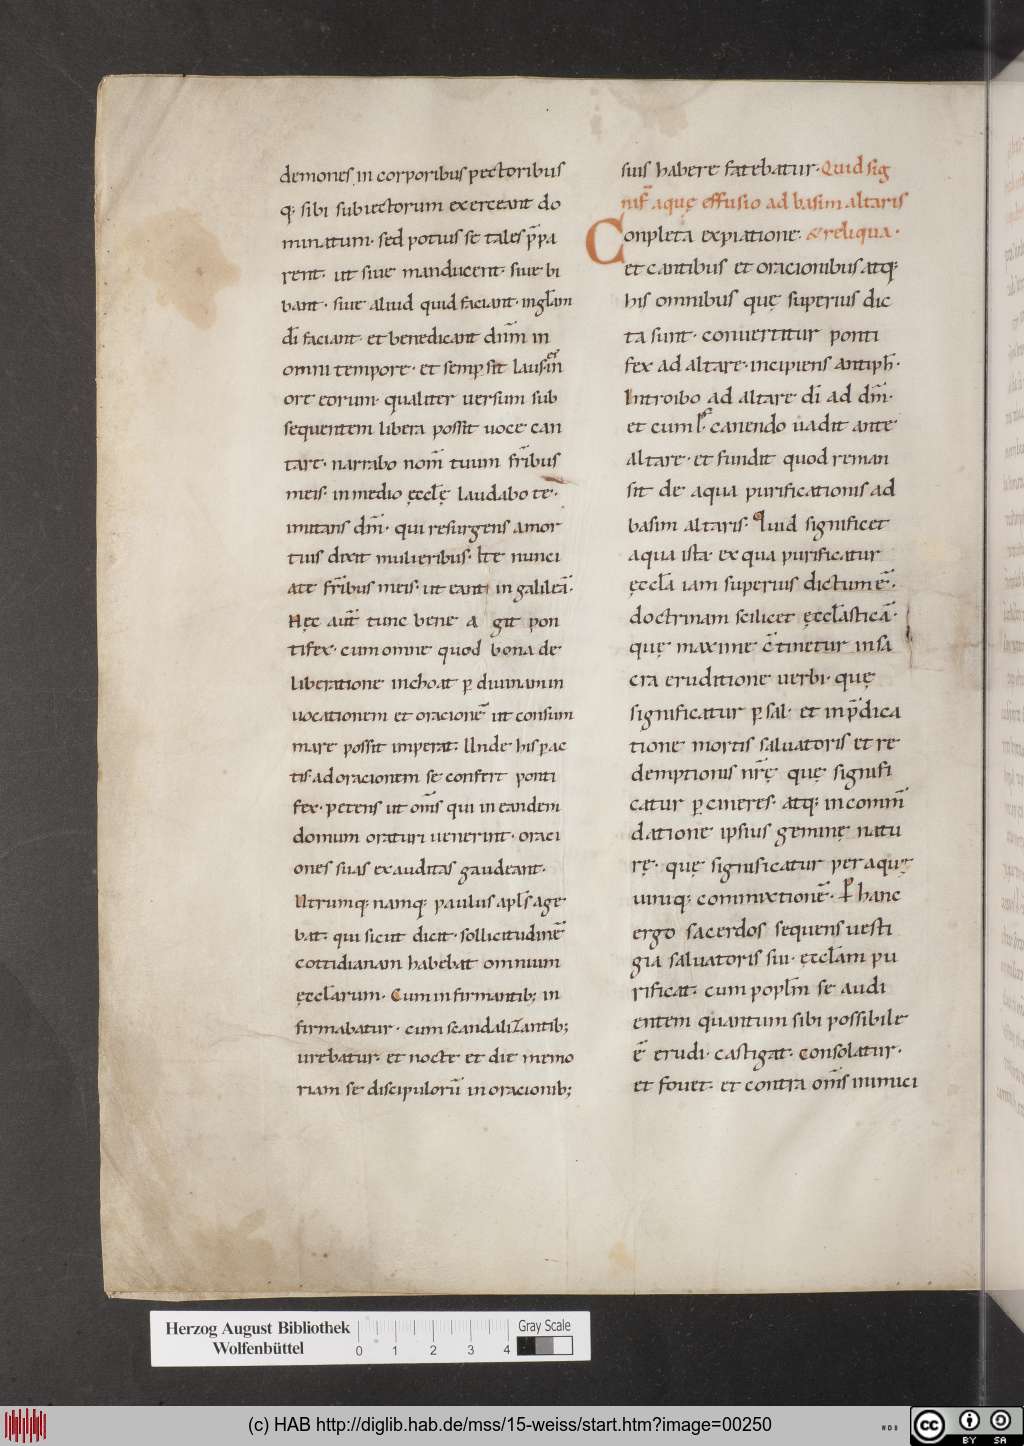 demones in corporibus pectoribus
q; sibi subiectorum exerceant do
minatum· sed potius se tales p̄pa
rent· ut siue manducent· siue bi
bant· siue aliud quid faciant· in gl̄am
dī faciant· et benedicant dn̄m in
omni tempore· et semp sit laus eī in
ore eorum· qualiter uersum sub
sequentem libera possit uoce can
tare· narrabo nom̄ tuum fr̄ibus
meis· in medio ęccl̄ę laudabo te·
imitans dn̄m· qui resurgens a mor
tuis dixit mulieribus· Ite nunci
ate fr̄ibus meis· ut eant in galileā·
Hęc aut̄ tunc bene a git pon
tifex· cum omne quod bona de
liberatione inchoat p diuinam in
uocationem et oracionē ut consum
mare possit imperat· Unde his pac
tis· ad oracionem se confert ponti
fex· petens ut om̄s qui in eandem
domum oraturi uenerint· oraci
ones suas exauditas gaudeant·
Utrumq; namq; paulus apl̄s age
bat· qui sicut dicit· sollicitudinē
cottidianam habebat omnium
ęccl̄arum· Cum infirmantib; in
firmabatur· cum scandalizantib;
urebatur· et nocte et die memo
riam se discipulorū in oracionib;
suis habere fatebatur· Quid sig
nif̄ aquę effusio ad basim altaris
Conpleta expiatione· & reliqua·
et cantibus et oracionibus atq;
his omnibus quę superius dic
ta sunt· conuertitur ponti
fex ad altare· incipiens antiph̄·
Introibo ad altare dī ad dn̄m·
et cum ps· canendo uadit ante
altare· et fundit quod reman
sit de aqua purificationis ad
basim altaris· Quid significet
aqua ista· ex qua purificatur
ęccl̄a iam superius dictum ē·
doctrinam scilicet ęccl̄asticā·
quę maxime c̄tinetur in sa
cra eruditione uerbi· quę
significatur p sal· et in p̄dica
tione mortis saluatoris et re
demptionis nr̄ę quę signifi
catur p cineres· atq; in comm̄
datione ipsius geminę natu
rę· quę significatur per aquę
uiniq; commixtionē· P hanc
ergo sacerdos sequens uesti
gia saluatoris sui· ęccl̄am pu
rificat· cum popl̄m se audi
entem quantum sibi possibile
ē erudi· castigat· consolatur·
et fouet· et contra om̄s inimici
Herzog August Bibliothek
Wolfenbüttel
0 1 2 3 4
Gray Scale
(c) HAB http://diglib.hab.de/mss/15-weiss/start.htm?image=00250
cc BY SA